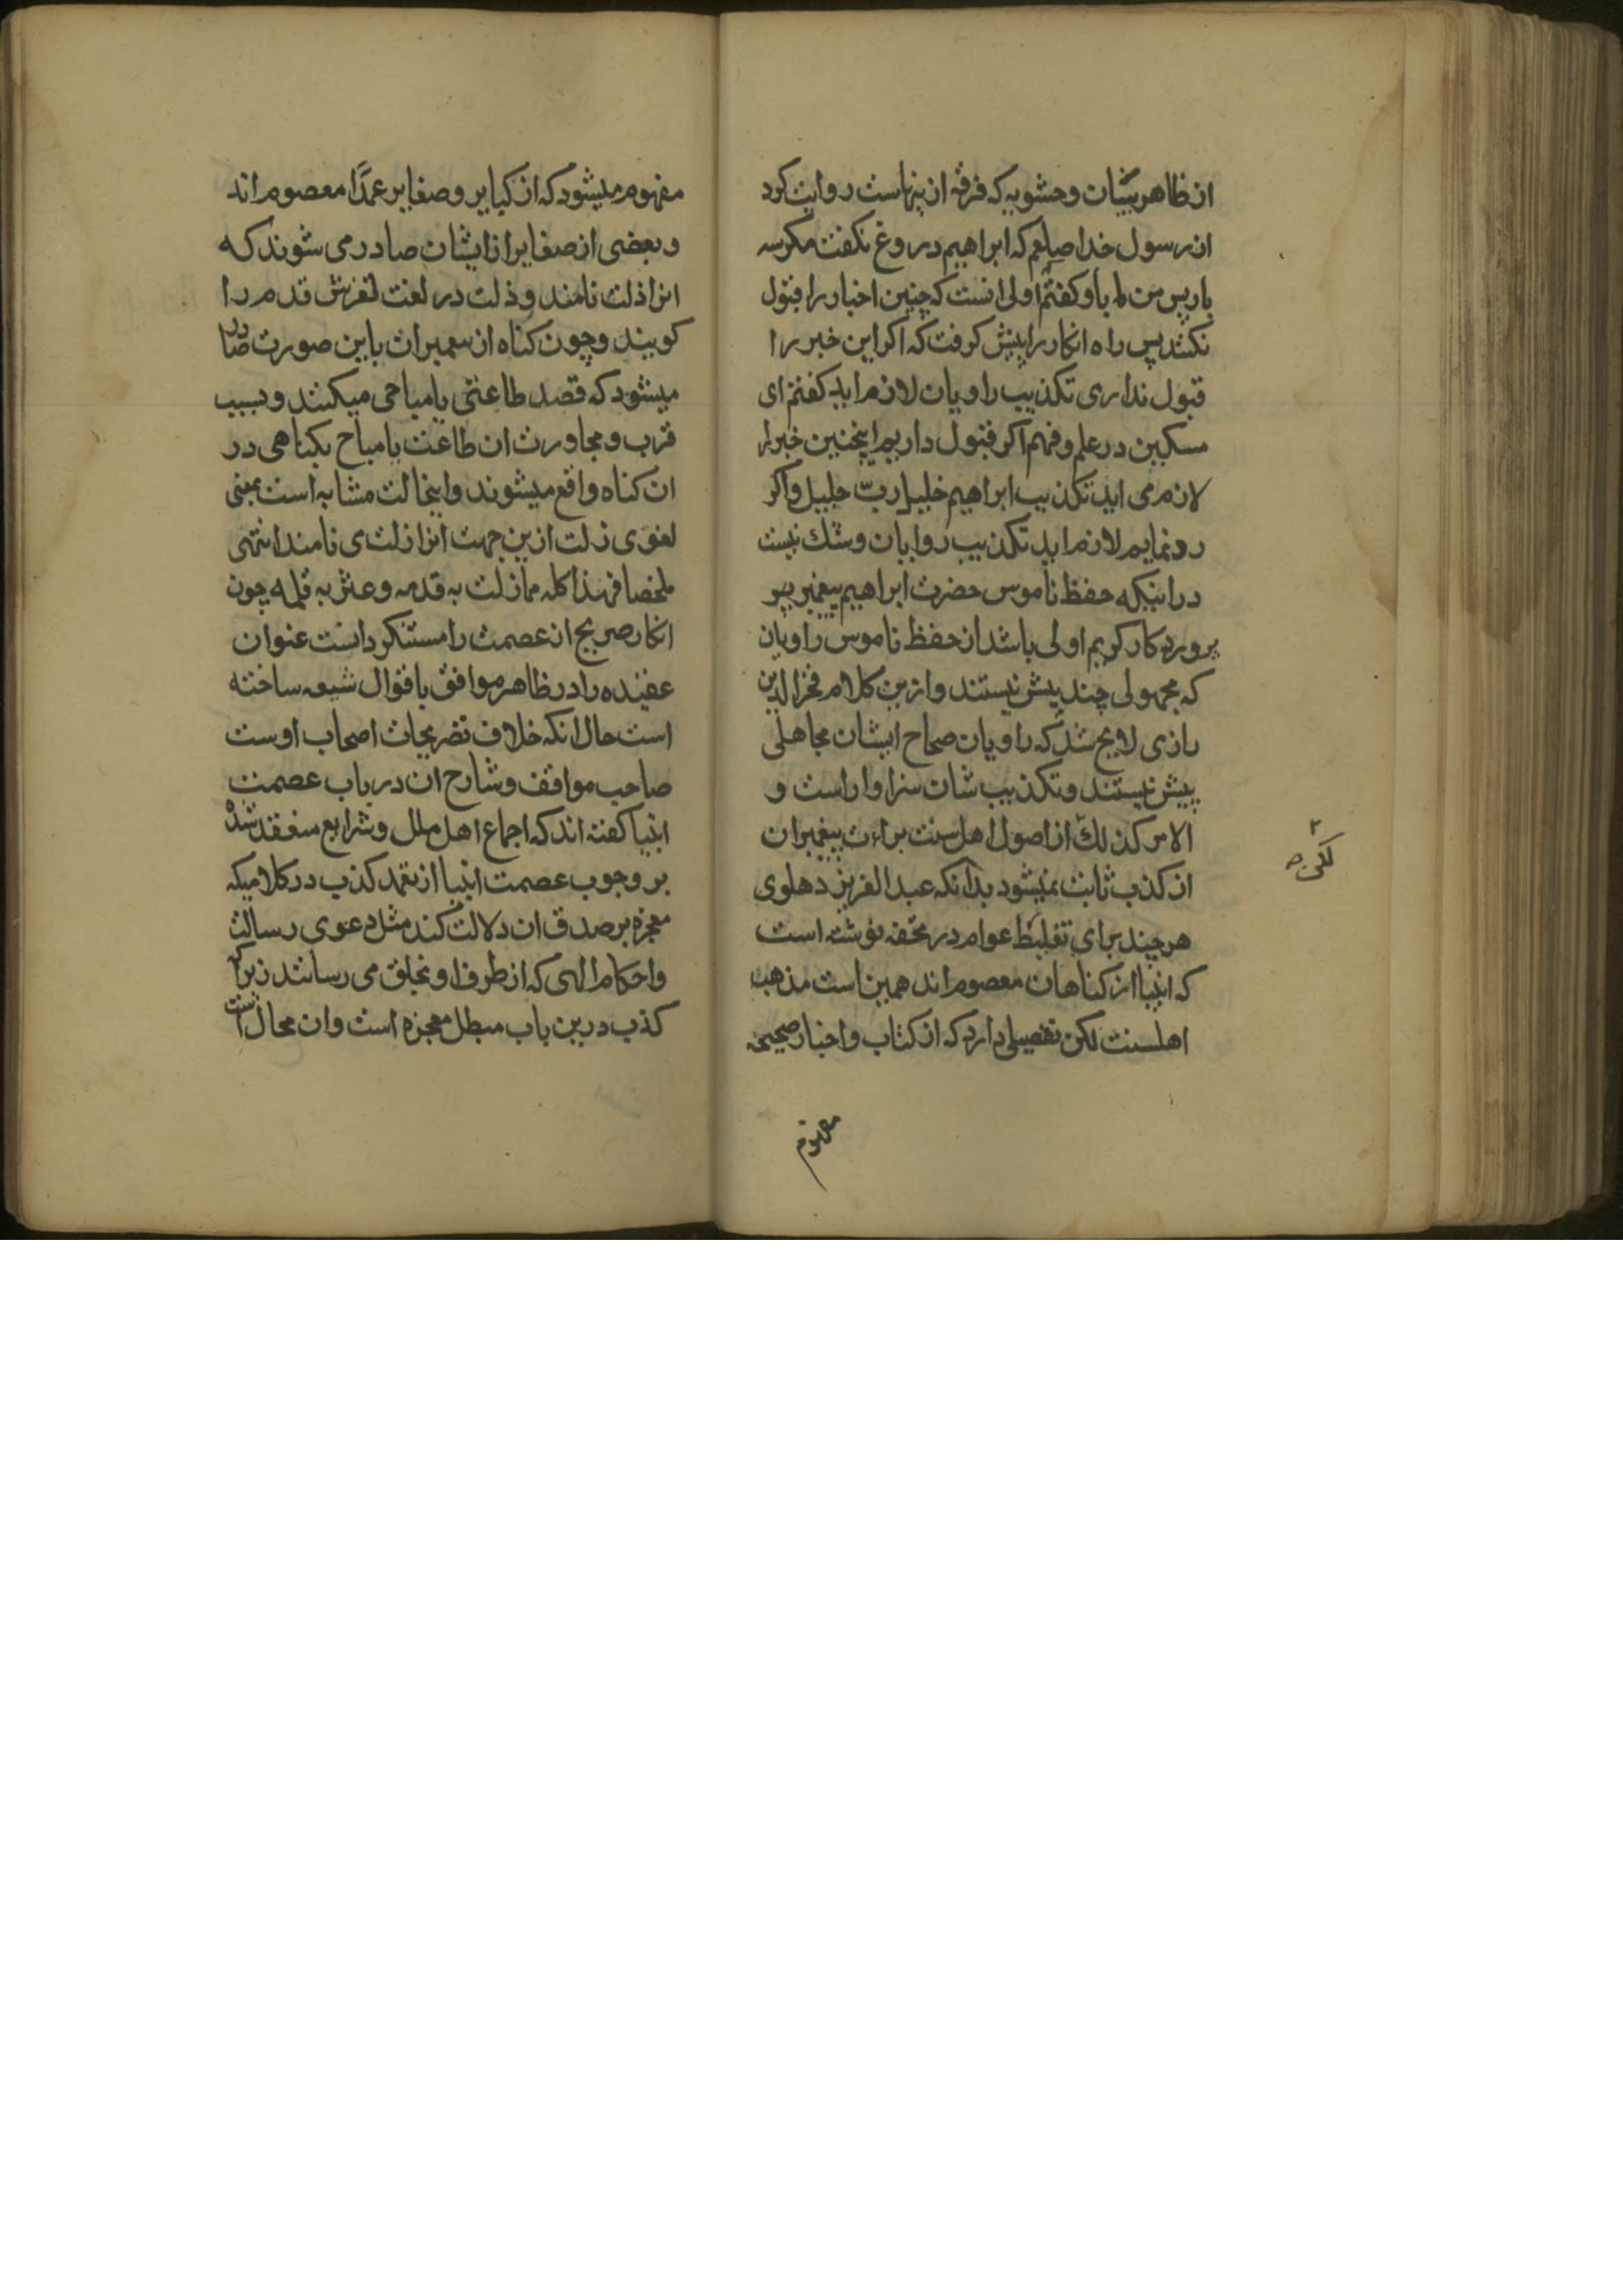 از ظاهر بینان و حشویه که فرقه از ینهاست روایت کرد
از رسول خدا صلعم که ابراهیم دروغ نکفت مکر سه
بار پس من با و کفتم اولی انست که چنین اخبار را قبول
نکنند پس راه انکار را پیش کرفت که اکر این خبر را
قبول نداری تکذیب راویان لازم اید کفتم ای
مسکین در علم و فهم اکر قبول داریم اینچنین خبر را
لازم می اید تکذیب ابراهیم خلیل ربّ جلیل و اکر
رد نمایم لازم اید تکذیب روایان و شك نیست
در اینکه حفظ ناموس حضرت ابراهیم پیغمبر
پروردکار کریم اولی باشد از حفظ ناموس راویان
که مجهولی چند بیش نیستند و ازین کلام فخر الدین
رازی لایح شد که راویان صحاح ایشان مجاهلی
بیش نیستند و تکذیب شان سزاوار است و
الامر کذلك از اصول اهل سنت براءت پیغمبران
از کذب ثابت نمیشود بدانکه عبد العزیز دهلوی
هر چند برای تغلیط عوام در تحفه نوشته است
که انبیا از کناهان معصوم اند همین است مذهب
اهلسنت لکن تفصیلی دارد که از کتاب و اخبار صحیحه
مفهوم
لکن
مفهوم میشود که از کبایر و صغایر عمدًا معصوم اند
و بعضی از صغایر از ایشان صادر می شوند که
انرا ذلت نامند و ذلت در لغت لغزش قدم را
کویند و چون کناه از پیغمبران باین صورت صادر
میشود که قصد طاعتی یا مباحی میکنند و بسبب
قرب و مجاورت ان طاعت یا مباح بکناهی در
ان کناه واقع میشوند و اینحالت مشابه است بمعنی
لغوی زلت ازین جهت انرا زلت می نامند انتهی
ملخصا فهذا کله مما زلت به قدمه و عثر به قلمه چون
انکار صریح از عصمت را مستنکر دانست عنوان
عقیده را در ظاهر موافق باقوال شیعه ساخته
است حال انکه خلاف تصریحات اصحاب اوست
صاحب مواقف و شارح ان در باب عصمت
انبیا کفته اند که اجماع اهل ملل و شرایع منعقد شده
بر وجوب عصمت انبیا از تعمد کذب در کلامیکه
معجزه بر صدق ان دلالت کند مثل دعوی رسالت
و احکام الهی که از طرف او بخلق می رسانند زیرا که
کذب درین باب مبطل معجزه است و ان محال است